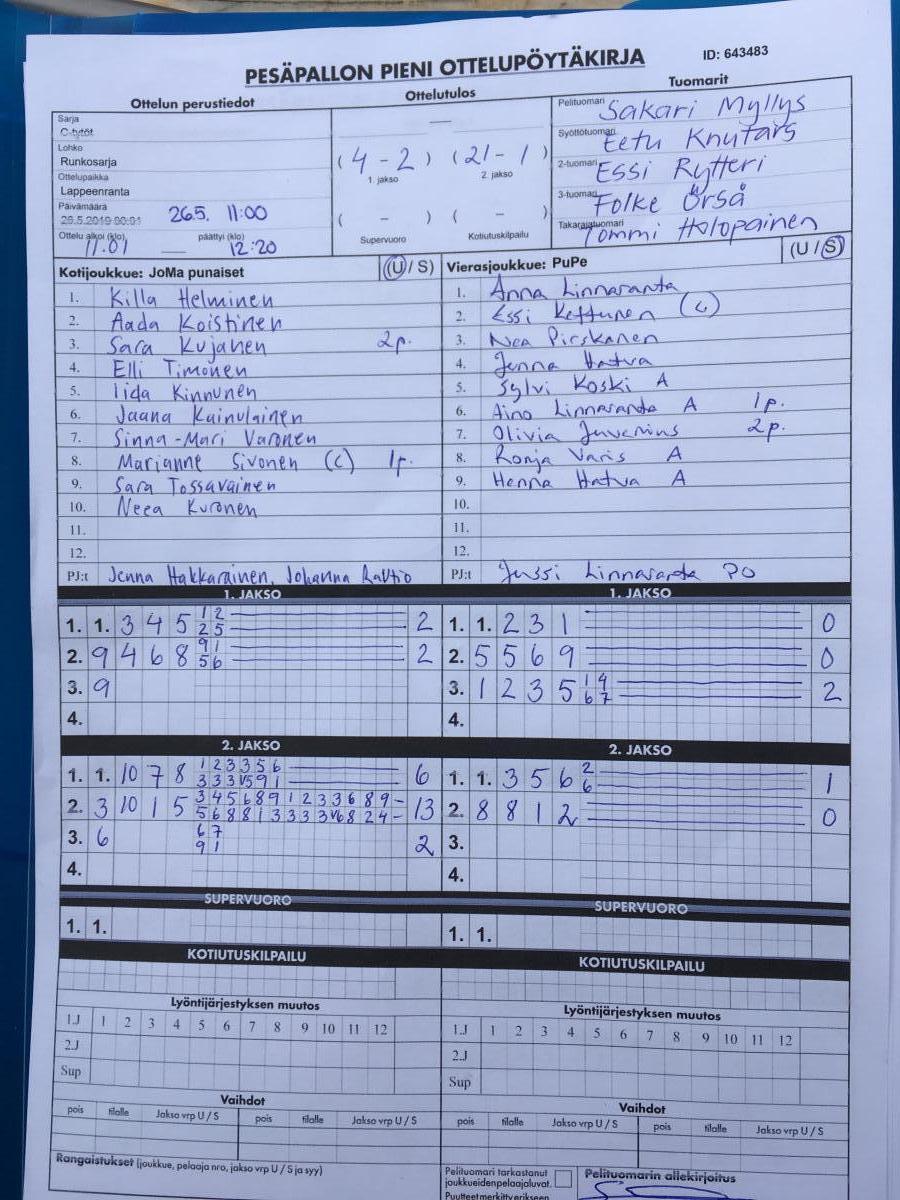 PESÄPALLON PIENI OTTELUPÖYTÄKIRJA
ID: 643483
Ottelun perustiedot
Ottelutulos
Tuomarit
Sarja
C-tytöt
Lohko
Runkosarja
Ottelupaikka
Lappeenranta
Päivämäärä
26.5. 11:00
Ottelu alkoi (klo) 11.01 päättyi (klo) 12:20
( 4 - 2 ) ( 21 - 1 )
1. jakso 2. jakso
( - ) ( - )
Supervuoro Kotiutuskilpailu
Pelituomari Sakari Myllys
Syöttötuomari Eetu Knutars
2-tuomari Essi Rytteri
3-tuomari Folke Örså
Takarajatuomari Tommi Holopainen
Kotijoukkue: JoMa punaiset (U / S)
1. Killa Helminen
2. Aada Koistinen
3. Sara Kujanen 2p.
4. Elli Timonen
5. Iida Kinnunen
6. Jaana Kainulainen
7. Sinna-Mari Varonen
8. Marianne Sivonen (C) 1p.
9. Sara Tossavainen
10. Neea Kuronen
11.
12.
PJ:t Jenna Hakkarainen, Johanna Rautio
Vierasjoukkue: PuPe (U / S)
1. Anna Linnaranta
2. Essi Kettunen (C)
3. Nea Pirskanen
4. Jenna Hatva
5. Sylvi Koski A
6. Aino Linnaranta A 1p.
7. Olivia Juvenius 2p.
8. Ronja Varis A
9. Henna Hatva A
10.
11.
12.
PJ:t Jussi Linnaranta PO
1. JAKSO
1. 1. 3 4 5 1 2 2
2 5
2. 9 4 6 8 9 1 2
5 6
3. 9
4.
1. JAKSO
1. 1. 2 3 1 0
2. 5 5 6 9 0
3. 1 2 3 5 1 4 2
6 7
4.
2. JAKSO
1. 1. 10 7 8 1 2 3 3 5 6 6
3 3 3 V5 9 1
2. 3 10 1 5 3 4 5 6 8 9 1 2 3 3 6 8 9 - 13
5 6 8 8 1 3 3 3 3 V6 8 2 4 -
3. 6 6 7 2
9 1
4.
2. JAKSO
1. 1. 3 5 6 2 1
6
2. 8 8 1 2 0
3.
4.
SUPERVUORO
1. 1.
SUPERVUORO
1. 1.
KOTIUTUSKILPAILU
KOTIUTUSKILPAILU
Lyöntijärjestyksen muutos
1.J 1 2 3 4 5 6 7 8 9 10 11 12
2.J
Sup
Lyöntijärjestyksen muutos
1.J 1 2 3 4 5 6 7 8 9 10 11 12
2.J
Sup
Vaihdot
pois tilalle Jakso vrp U / S pois tilalle Jakso vrp U / S
Vaihdot
pois tilalle Jakso vrp U / S pois tilalle Jakso vrp U / S
Rangaistukset (joukkue, pelaaja nro, jakso vrp U / S ja syy)
Pelituomari tarkastanut
joukkueidenpelaajaluvat.
Puutteet merkitty erikseen
Pelituomarin allekirjoitus